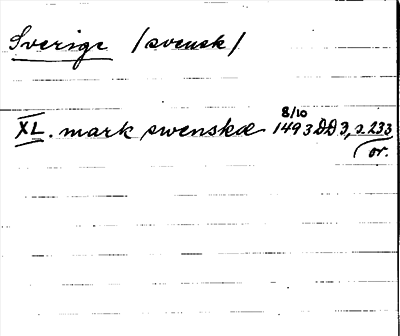 Sverige /svensk/
XL. mark swenskæ 8/10 1493 DD 3, s. 233
or.